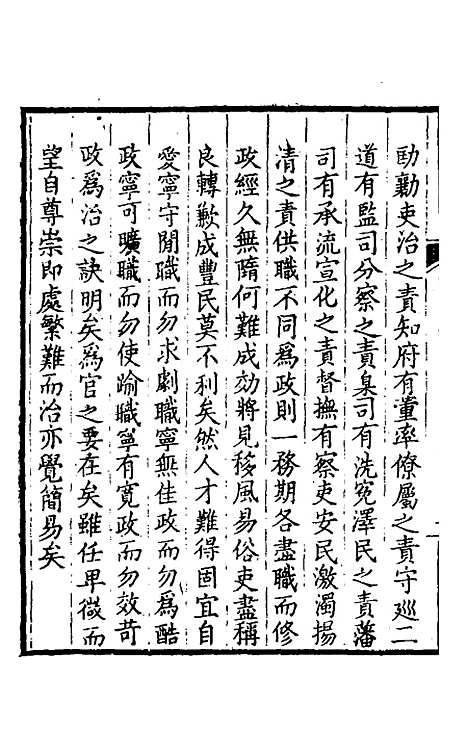 勆勷吏治之責知府有董率僚屬之責守廵二
道有監司分察之責臬司有洗冤澤民之責藩
司有承流宣化之責督撫有察吏安民激濁揚
清之責供職不同爲政則一務期各盡職而修
政經久無隋何難成効將見移風易俗吏盡稱
良轉歉成豐民莫不利矣然人才難得固宜自
愛寧守閒職而勿求劇職寧無佳政而勿爲酷
政寧可曠職而勿使踰職寧有寛政而勿效苛
政爲治之訣明矣爲官之要在矣雖任卑微而
望自尊崇即處繁難而治亦覺簡易矣